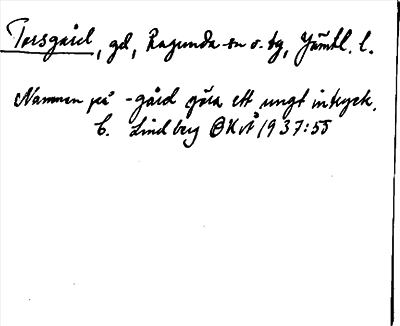 Torsgård, gd, Ragunda sn o. tg, Jämtl. l.
Namnen på -gård göra ett ungt intryck.
C. Lindberg ÖHvÅ 1937:55